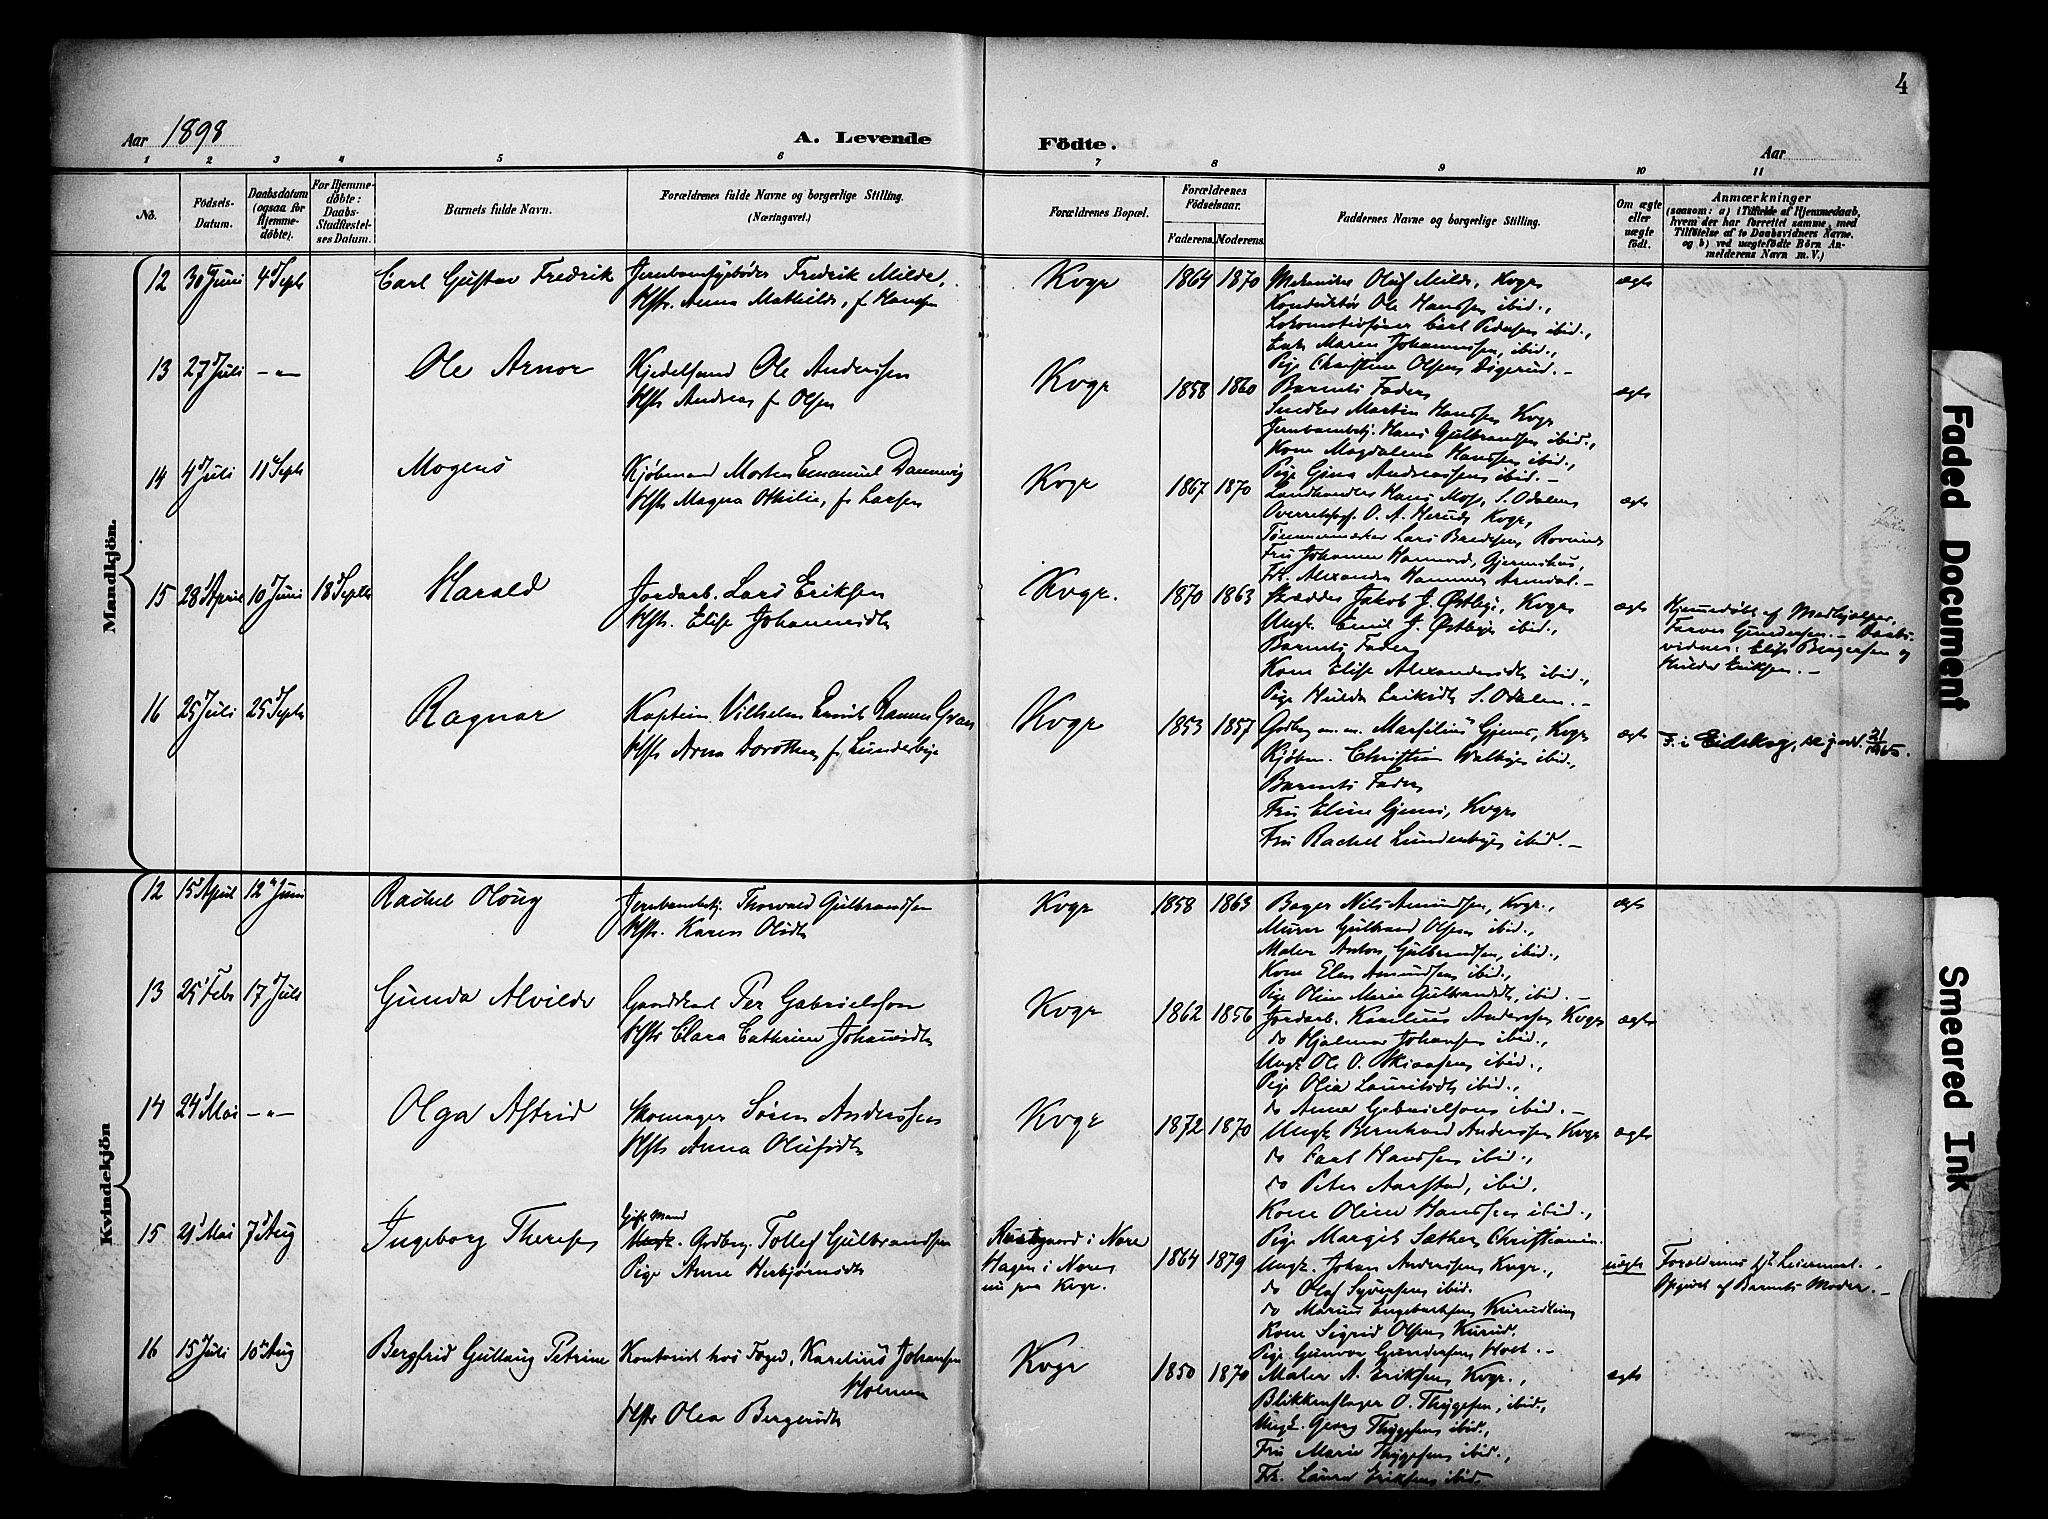 4
Aar 1898
A. Levende Födte.
Aar
1 2 3 4 5 6 7 8 9 10 11
No.
Födsels-Datum.
Daabsdatum (ogsaa for Hjemme-døbte).
For Hjemme-døbte: Daabs-Stadfæstel-ses Datum.
Barnets fulde Navn.
Forældrenes fulde Navne og borgerlige Stilling. (Næringsvei.)
Forældrenes Bopæl.
Forældrenes Födselsaar.
Faderens. Moderens.
Faddernes Navne og borgerlige Stilling.
Om ægte eller uægte födt.
Anmærkninger
(saasom: a) i Tilfælde af Hjemmedaab, hvem der har forrettet samme, med Tilföielse af to Daabsvidners Navne. og b) ved uægtefödte Börn An-melderens Navn m. V.)
Mandkjön.
12 30 Juni 4 Septr Carl Gustav Fredrik
Fredrik Milde,
Hstr. Anna Mathilde, f. Hansen
Kvgr 1864 1870
Mekaniker Oluf Milde, Kvgr
Konduktör Ole Hanssen ibid.,
Lokomotivfører Carl Pedersen ibid.,
Enke Maren Johannessen, ibid.,
Pige Christine Olsen Digerud. –
ægte
13 27 Juli –"– Ole Arnor
Ole Anderssen
Hstr Andrea f. Olsen
Kvgr 1858 1860
Barnets Fader
Snedker Martin Hanssen Kvgr
Jernbanebetj. Hans Gulbrandsen ibid.,
Kone Magdalena Hanssen ibid.,
Pige Gina Andreassen ibid. –
ægte
14 4 Juli 11 Septr Mogens
Kjöbmand Morten Emanuel Dannevig
Hstr Magna Othilie, f. Larsen
Kvgr 1867 1870
Landhandler Hans Moss, S. Odalen
O. A. Herud, Kvgr,
Lars Bredesen
Fru Johanne
Frk. Alexandra Hammer Arendal. –
ægte
15 28 April 10 Juni 18 Septbr Harald
Jordarb. Lars Eriksen
Hstr. Elise Johannesdtr
Kvgr. 1870 1863
Skrædder Jakob J. Østby, Kvgr
Ungk. Emil J. Østby ibid.,
Barnets Fader
Kone Elise Alexandersdtr ibid.,
Pige Hulda Eriksdtr S. Odalen. –
ægte
Hjemmedøbt af Madhjælper
Gundersen. – Daabs-
vidner: Elise Bergersen og
Hulda Eriksen. –
16 25 Juli 25 Septr Ragnar
Kaptein Vilhelm Ernst Rasmus Gran
Hstr Anna Dorothea f. Lunderbye
Kvgr 1853 1857
Godbg m. m. Marselius Gjems, Kvgr
Kjöbm. Christian Walbye ibid.,
Barnets Fader
Fru Eline Gjems, Kvgr
Fru Rachel Lunderbye ibid. –
ægte
F. i Eidskog,
Kvindekjön
12 15 April 12 Juni Rachel Oloug
Jernbanebetj. Thorvald Gulbrandsen
Hstr. Karen Olsdtr
Kvgr 1858 1863
Bager Nils Amundsen, Kvgr.,
Murer Gulbrand Olsen ibid.,
Maler Anton Gulbrandsen, ibid.,
Kone Elen Amundsen ibid.,
Pige Oline Marie Gulbrandsdtr, ibid. –
ægte
13 25 Febr 17 Juli Gunda Alvilde
Per Gabrielsson
Hstr Clara Cathrine Johannesdtr
Kvgr 1862 1856
Jordarb. Karelius Anderssen Kvgr
do Hjalmar Johansen ibid.,
Ungk Ole O. ibid.,
Pige Olea Lauritsdtr ibid.,
do Anna Gabrielsson ibid. –
ægte
14 24 Mai –"– Olga Astrid
Skomager Sören Anderssen
Hstr Anna Olufsdtr
Kvgr 1872 1870
Ungk Bernhard Anderssen Kvgr
do Carl Hanssen ibid.,
do Peter Aarstad, ibid.
Kone Oline Hanssen ibid.,
Pige Margit Sæther Christiania.
ægte
15 21 Mai 7 Aug Ingeborg Therese
Gift Mand
Tollef Gulbrandsen
Pige Anne Herbjörnsdtr
i Nore
Hagen i Nore,
nu paa Kvgr.
1864 1879
Ungk. Johan Anderssen Kvgr.,
do Olaf Syversen ibid.
do Marius Engebretsen
Kone Sigrid Olsen Kurud.
Pige Gunvor Gundersen Holt. –
uægte
Forældrenes 1ste Leiermaal.
Opgivet af Barnets Moder. –
16 15 Juli 10 Aug Bergfrid Gullaug Petrine
Kontorist hos Foged, Karelius Johansen
Holmen
Hstr Olea Bergersdtr
Kvgr 1850 1870
Maler A. Eriksen Kvgr.,
Blikkenslager O. Thygesen, ibid.,
Ungk. Georg Thygesen ibid.,
Fru Marie Thygesen ibid.,
Frk. Laura Eriksen ibid.
ægte
Faded Document
Smeared Ink